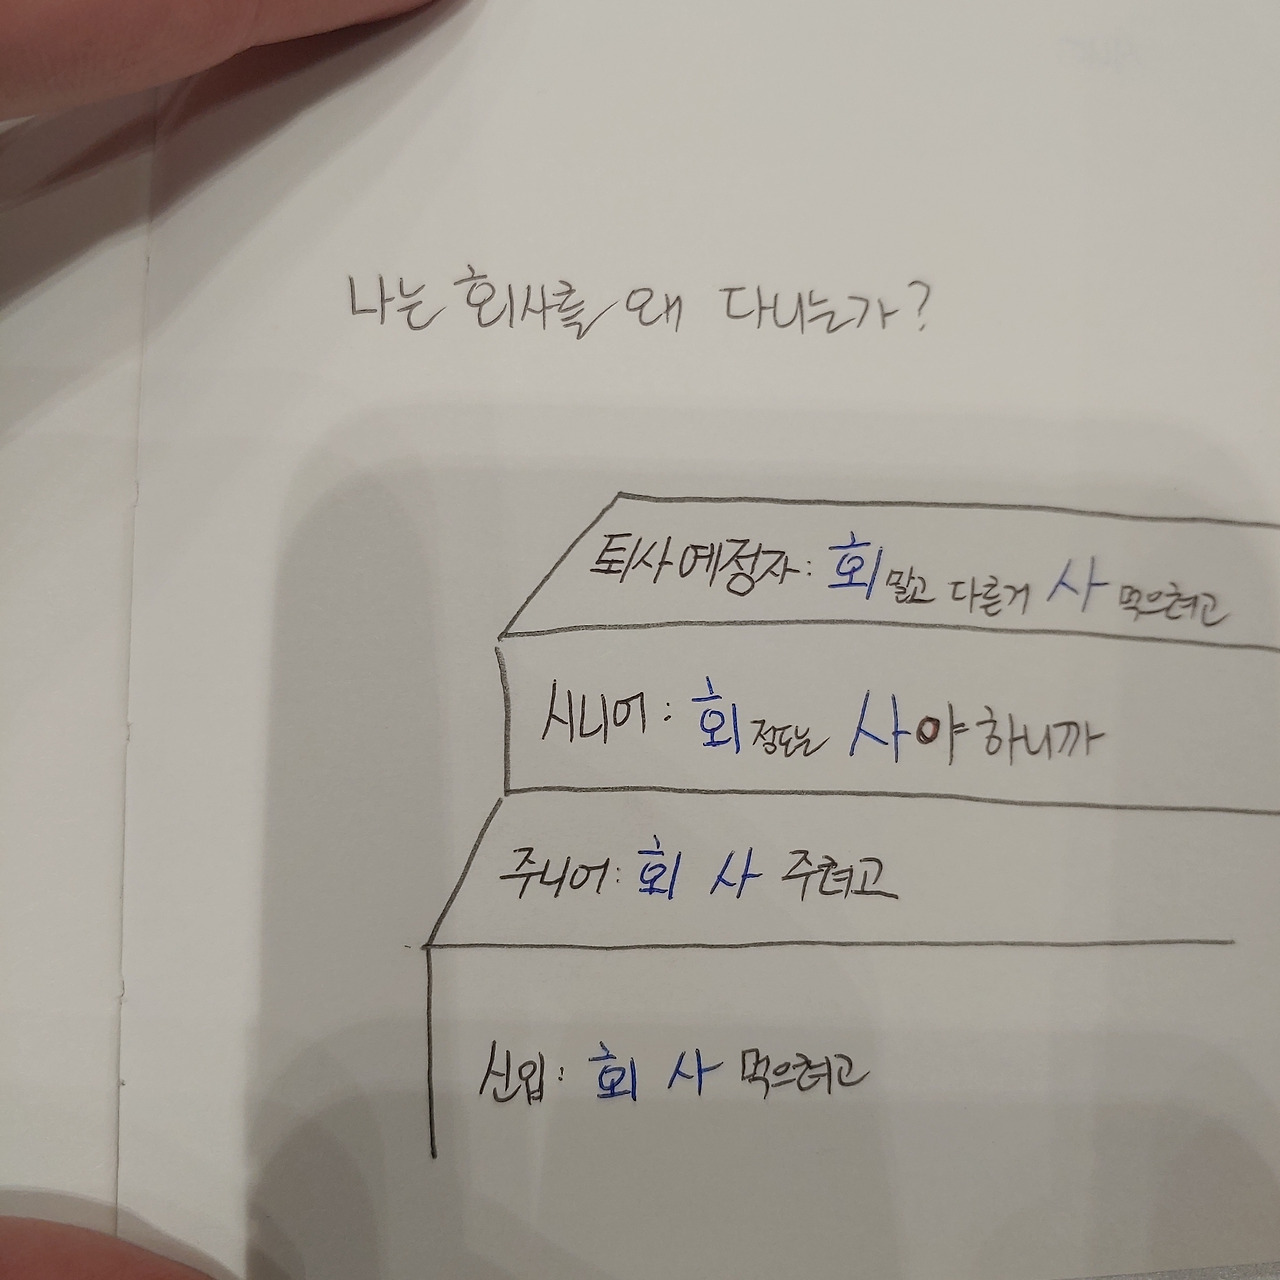 나는 회사를 왜 다니는가?
퇴사예정자: 회 말고 다른거 사 먹으려고
시니어: 회 정도는 사야 하니까
주니어: 회 사 주려고
신입: 회 사 먹으려고